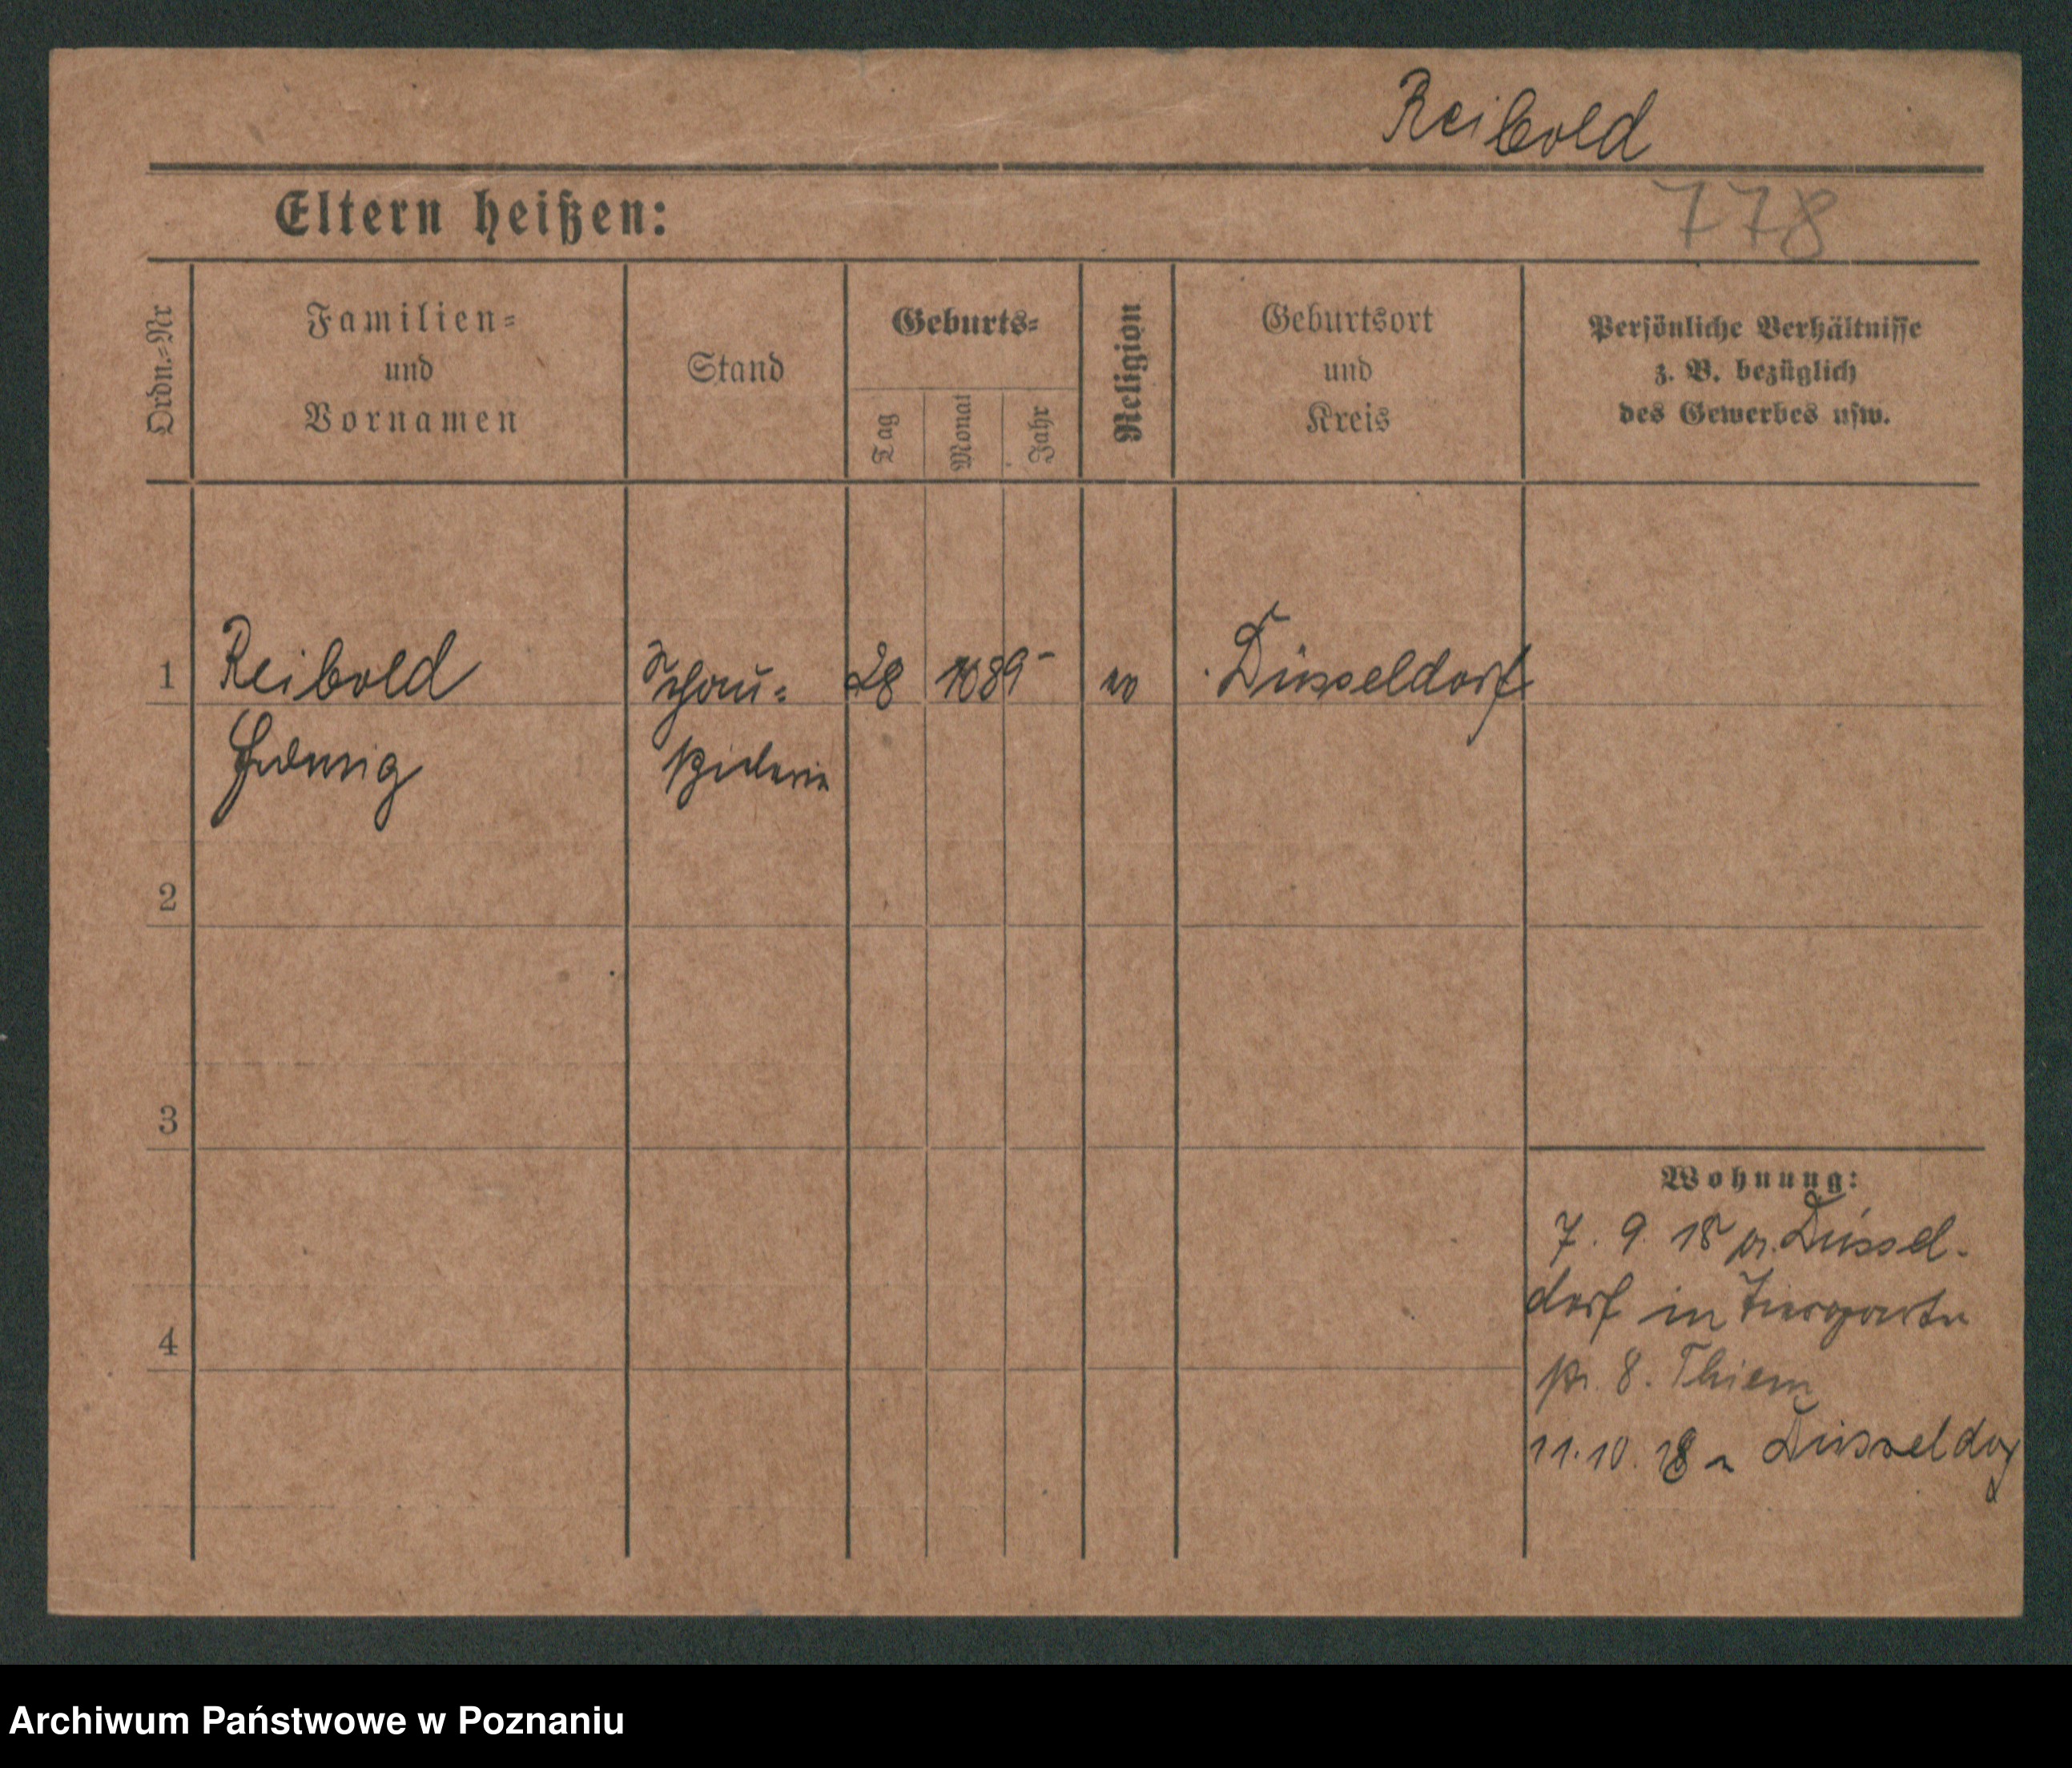 Reibold
Eltern heißen:
778
Ordn.-Nr
Familien-
und
Vornamen
Stand
Geburts-
Tag
Monat
Jahr
Religion
Geburtsort
und
Kreis
Persönliche Verhältnisse
z. B. bezüglich
des Gewerbes usw.
1
Reibold
Hedwig
Schau-
spielerin
28
10
89
ev
Düsseldorf
2
3
4
Wohnung:
7. 9. 18 Düssel-
dorf in Tiergarten
str. 8. Thiem
11. 10. 18 n Düsseldorf
Archiwum Państwowe w Poznaniu